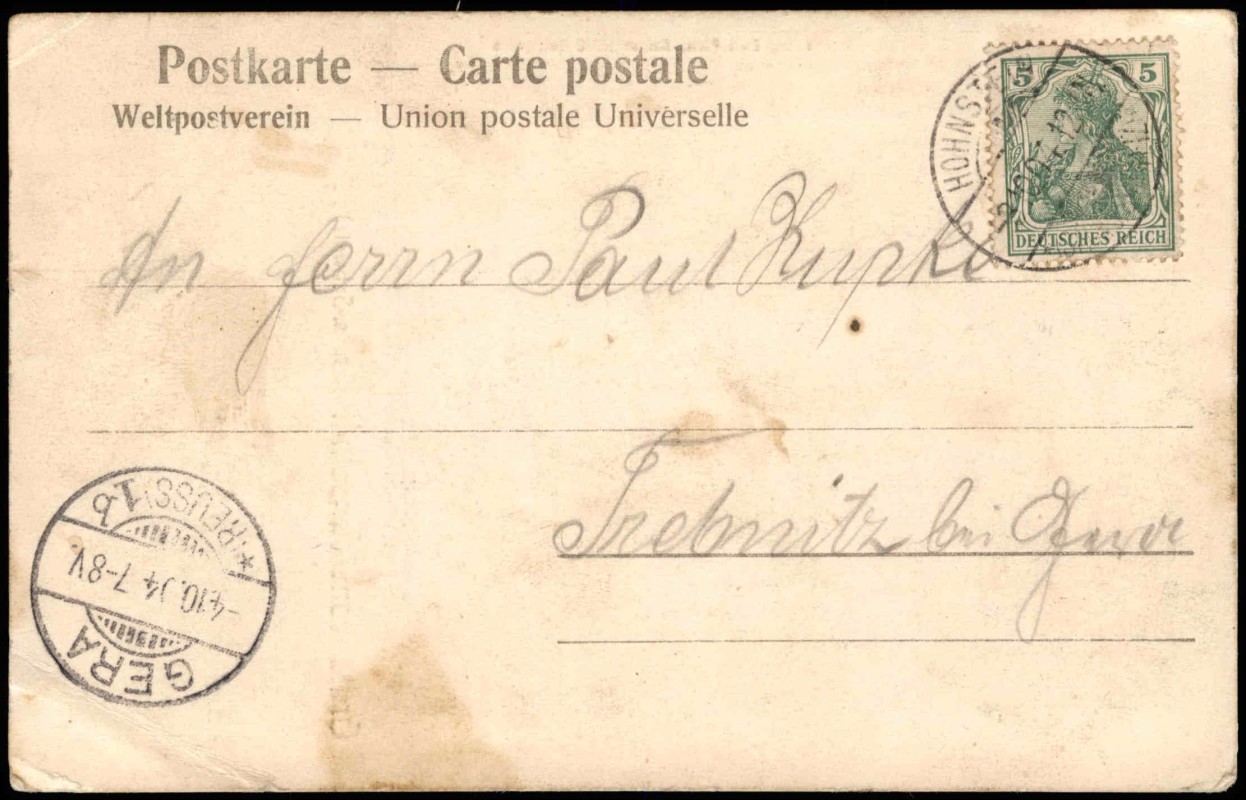 Postkarte — Carte postale
Weltpostverein — Union postale Universelle
5 5
DEUTSCHES REICH
HOHNST
An Herrn Paul Kupke
Trebnitz bei Gera
GERA
-4.10.04 7-8V.
* (REUSS) 1b